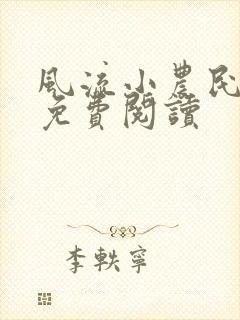 風流小農民
免費閱讀
李軼寧